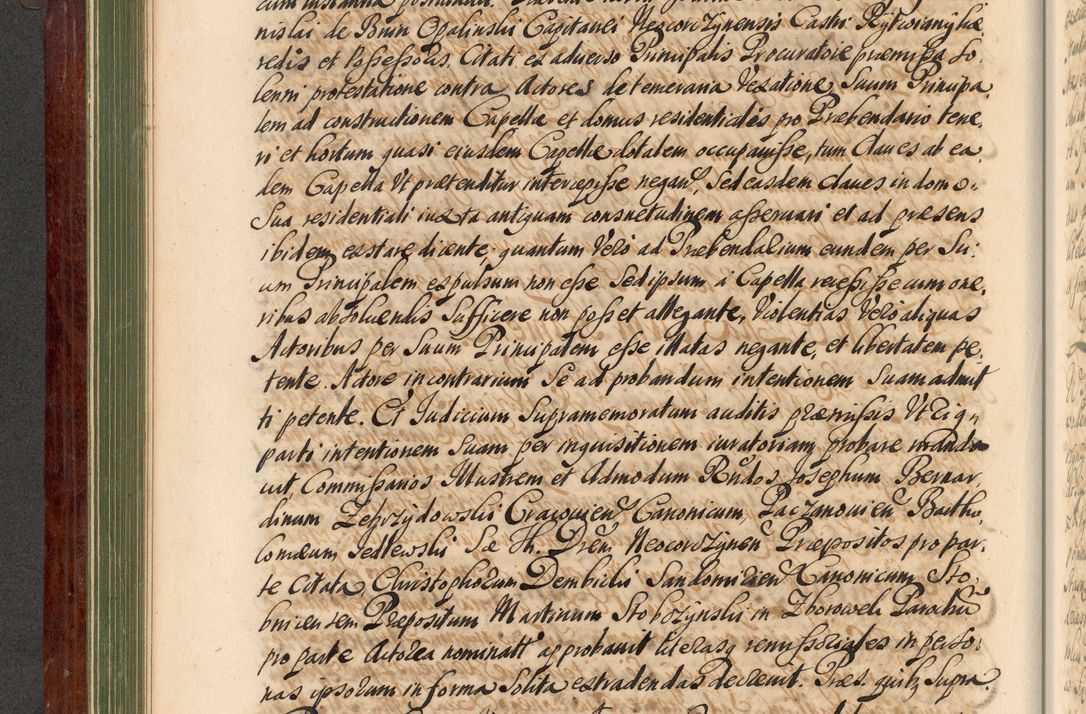 nislai de Bnin Opalinski Capitanei Neocorczynensis Castri Rytwiany hæ-
redis et Possessoris. Citati ex adverso Principalis Procuratore præmissa So-
lenni protestatione contra Actores de temeraria Vexatione, Suum Principa-
lem ad constructionem Capellæ et domus residentialis pro Præbendario tene-
ri et hortum quasi eiusdem Capellæ dotalem occupavisse, tum Claves ab ea-
dem Capella Vt prætenditur intercepisse negan. Sed easdem claves in domo
Sua residentiali iuxta antiquam consuetudinem asservari et ad præsens
ibidem exstare dicente; quantum Vero ad Præbendarium eundem per Su-
um Principalem expulsum non esse Sed ipsum a Capella recessisse cum one-
ribus absolvendis Sufficere non posset allegante, Violentias Vero aliquas
Actoribus per Suum Principalem esse illatas negante, et libertatem pe-
tente. Actore in contrarium Se ad probandum intentionem Suam admit
ti petente. Et Judicium Supramemoratum auditis præmissis Vt
parti intentionem Suam per inquisitionem iuratoriam probare manda
vit, Commissarios Illustrem et Admodum Rndos Josephum Bernar-
dinum Zebrzydowski Cracovien Canonicum, Paczanovien Bartho-
lomæum Jedlewski Neocorczynen Præpositos pro par-
te Citata Christophorum Dembicki Sandomirien Canonicum Sto-
bnicensem Præpositum Martinum Stobrzynski in Zborowek Parochū
pro parte Actorea nominatt approbavit literasq remissoriales in perso-
nas ipsorum in forma Solita extradendas decrevit. Præs. quib, Supra